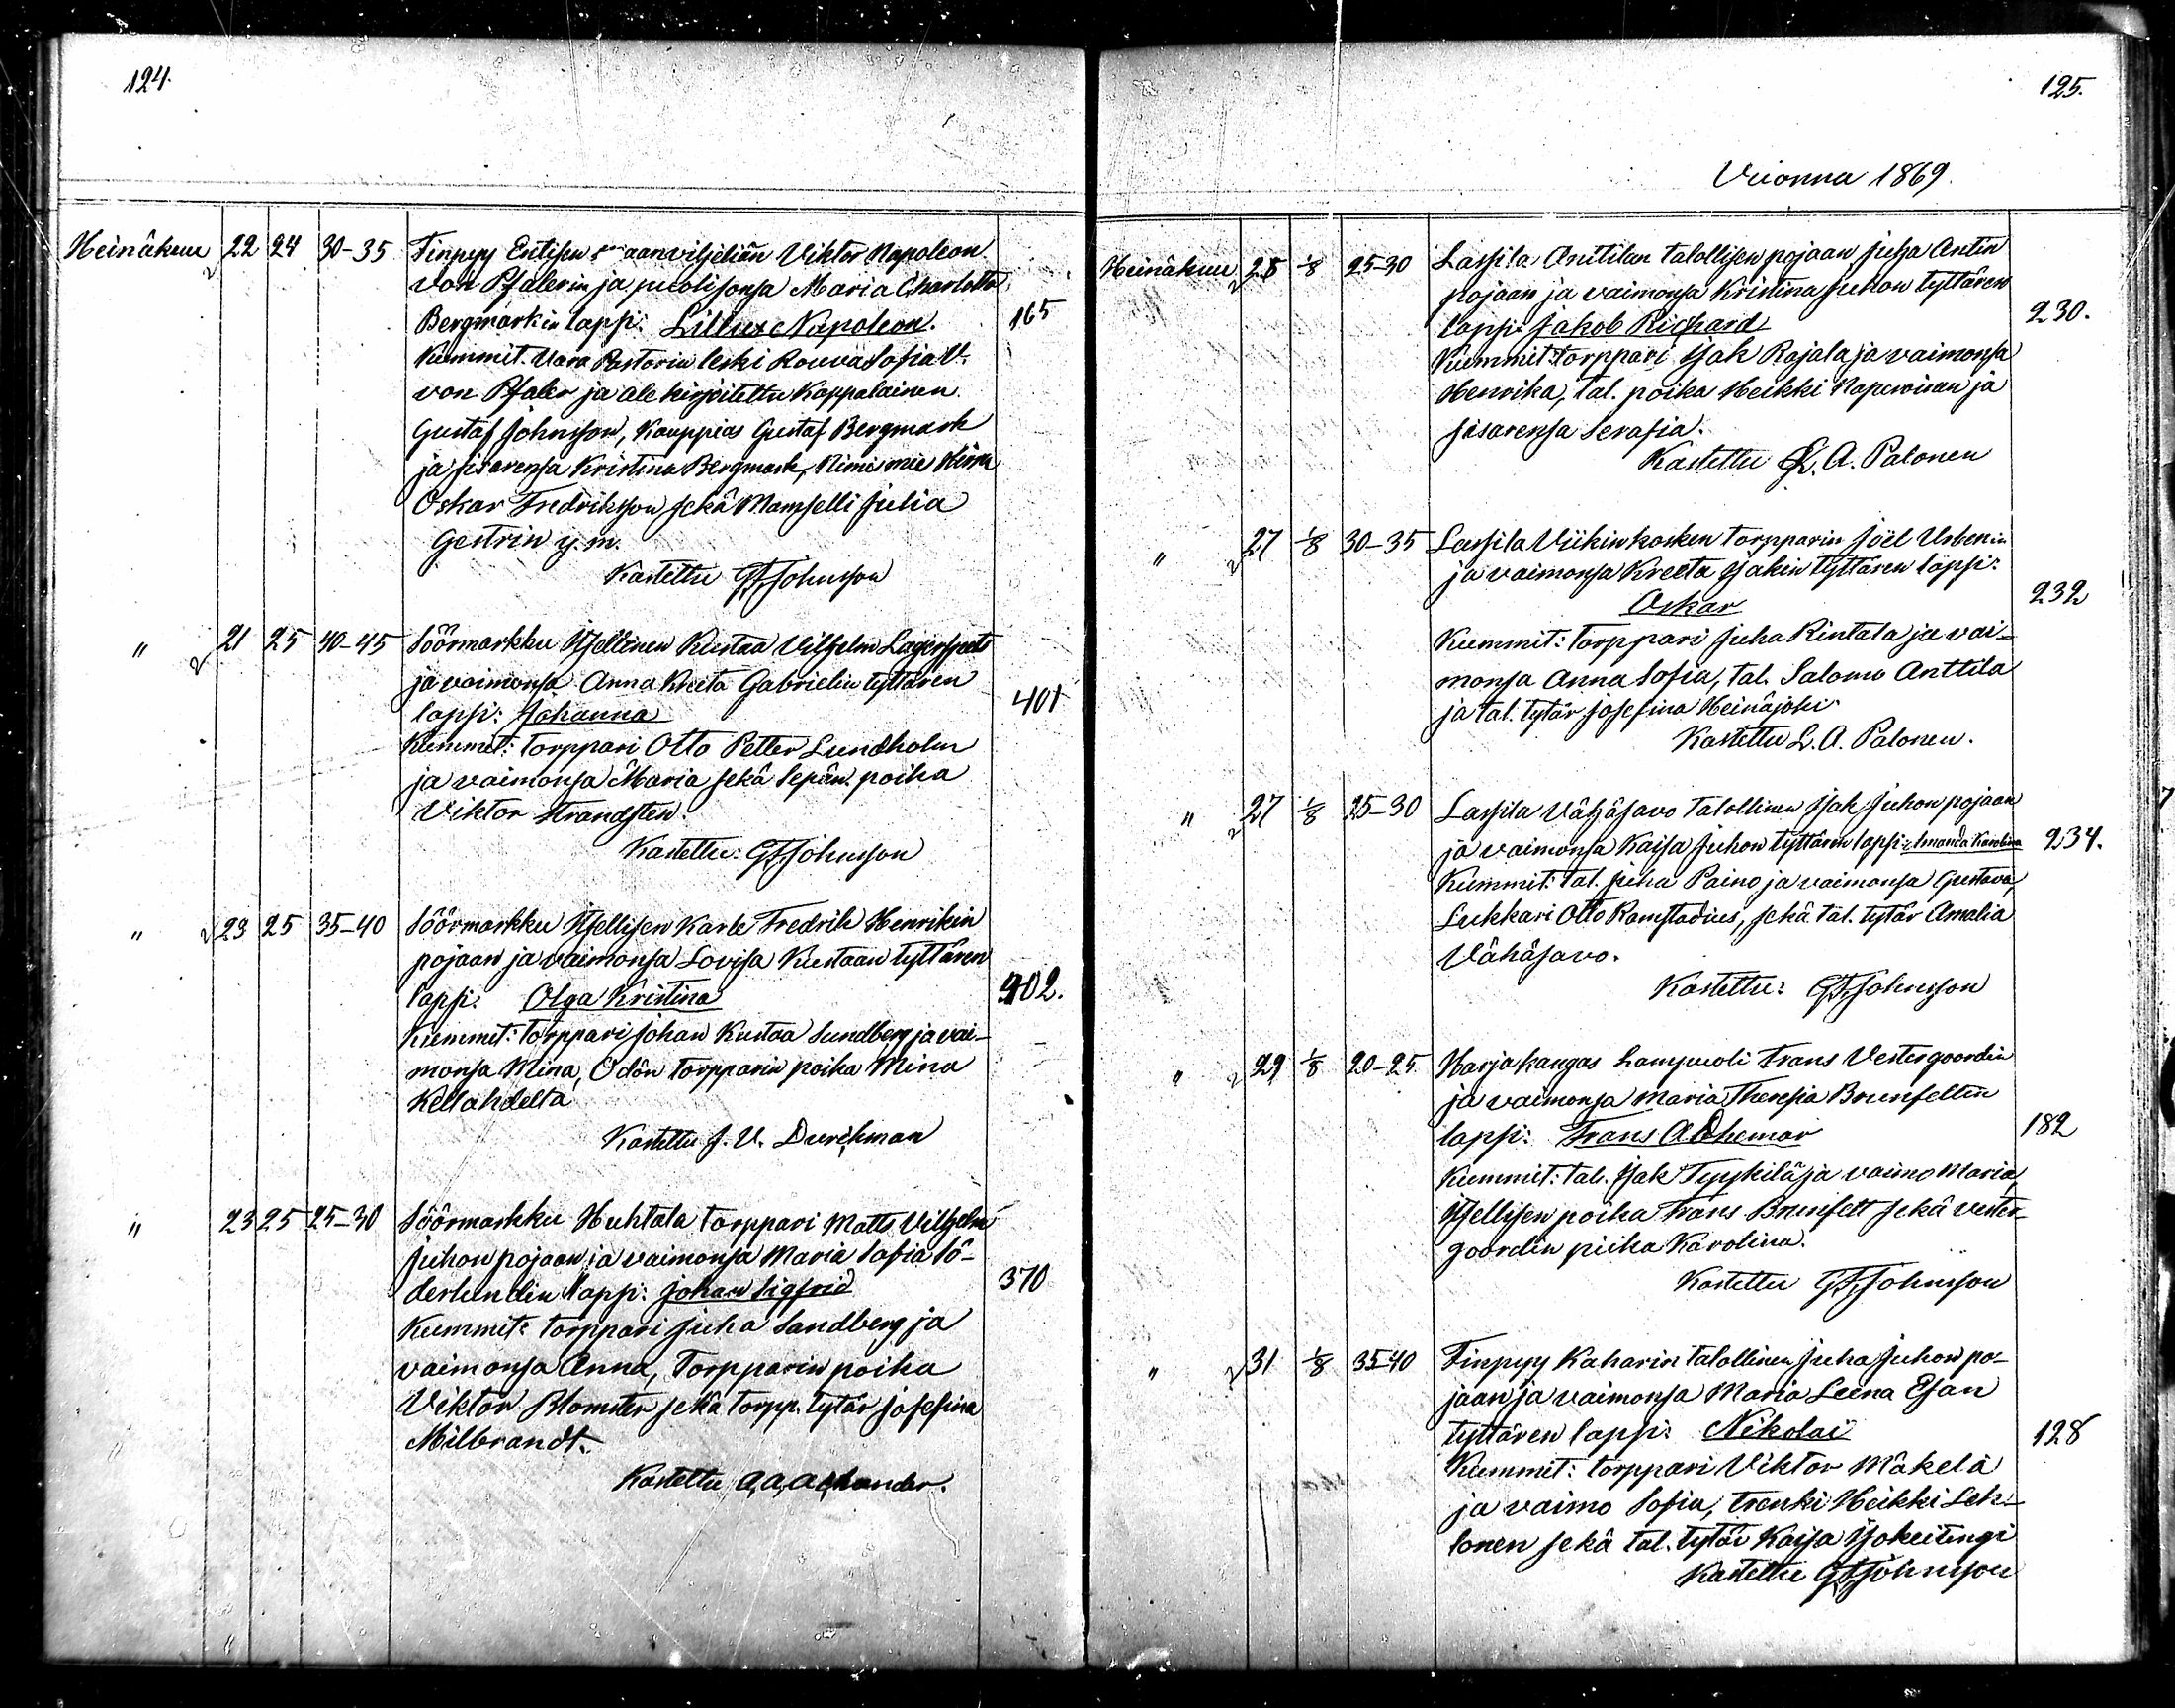 124.
Heinäkuu 22 24 30-35 Finpyy Entisen maanviljeliän Viktor Napoleon
von Pfalerin ja puolisonsa Maria Charlotta
Bergmarkin lapsi: Lillux Napoleon. 165
Kummit. Vara Pastorin leski Rouva Sofia V.
von Pfaler ja ale kirjoitettu Kappalainen
Gustaf Johnsson, Kauppias Gustaf Bergmark
ja sisarensa Kristina Bergmark, Nimismies Herra
Oskar Fredriksson sekä Mamselli Julia
Gestrin y. m.
Kastettu G F Johnsson
" 21 25 40-45 Söörmarkku Itsellinen Kustaa Vilhelm Lagerspets
ja vaimonsa Anna Kreta Gabrielin tyttären
lapsi: Johanna 401
Kummit: torppari Otto Petter Lundholm
ja vaimonsa Maria sekä Sepän poika
Viktor Strandsten.
Kastettu: G F Johnsson
" 23 25 35-40 Söörmarkku Itsellisen Karle Fredrik Henrikin
pojaan ja vaimonsa Lovisa Kustaan tyttären
lapsi: Olga Kristina 402.
Kummit: torppari Johan Kustaa Sundberg ja vai-
monsa Mina, Odön torpparin poika Mina
Kellahdelta
Kastettu J. V. Durchman
" 23 25 25-30 Söörmarkku Huhtala torppari Matts Vilhelm
Juhon pojaan ja vaimonsa Maria Sofia Sö-
derlundin lapsi: Johan Sigfrid 370
Kummit: torppari Juha Sandberg ja
vaimonsa Anna, Torpparin poika
Viktor Blomster sekä torpp. tytär Josefina
Milbrandt.
Kastettu A. A. Achander.
125.
Vuonna 1869.
Heinäkuu 25 1/8 25-30 Lassila Anttilan talollisen pojaan Juha Antin
pojaan ja vaimonsa Kristina Juhon tyttären
lapsi: Jakob Richard 230.
Kummit: torppari Isak Rajala ja vaimonsa
Henrika, tal. poika Heikki ja
sisarensa Serafia.
Kastettu L. A. Palonen
" 27 1/8 30-35 Lassila Viikinkosken torpparin Joel Urbenin
ja vaimonsa Kreeta Isakin tyttären lapsi:
Oskar 232
Kummit: torppari Juha Rintala ja vai-
monsa Anna Sofia, tal. Salomo Anttila
ja tal. tytär Josefina Heinäjoki
Kastettu L. A. Palonen.
" 27 1/8 25-30 Lassila Vähäsavo talollinen Isak Juhon pojaan
ja vaimonsa Kaisa Juhon tyttären lapsi: Amanda Karolina 234.
Kummit: tal. Juha Paino ja vaimonsa Gustava,
Lukkari Otto Ramstadius, sekä tal. tytär Amalia
Vähäsavo.
Kastettu: G F Johnsson
" 29 1/8 20-25 Harjakangas Lampuoli Frans Vestergoordin
ja vaimonsa Maria Theresia Brunfeltin
lapsi: Frans Adhemar 182
Kummit: tal. Isak Tyyskilä ja vaimo Maria,
Itsellisen poika Frans Brunfelt sekä Vester-
goordin piika Karolina.
Kastettu G F Johnsson
" 31 1/8 35-40 Finpyy Kaharin talollinen Juha Juhon po-
jaan ja vaimonsa Maria Leena Esan
tyttären lapsi: Nikolai 128
Kummit: torppari Viktor Mäkelä
ja vaimo Sofia, trenki Heikki Leh-
tonen sekä tal. tytär Kaisa
Kastettu G F Johnsson